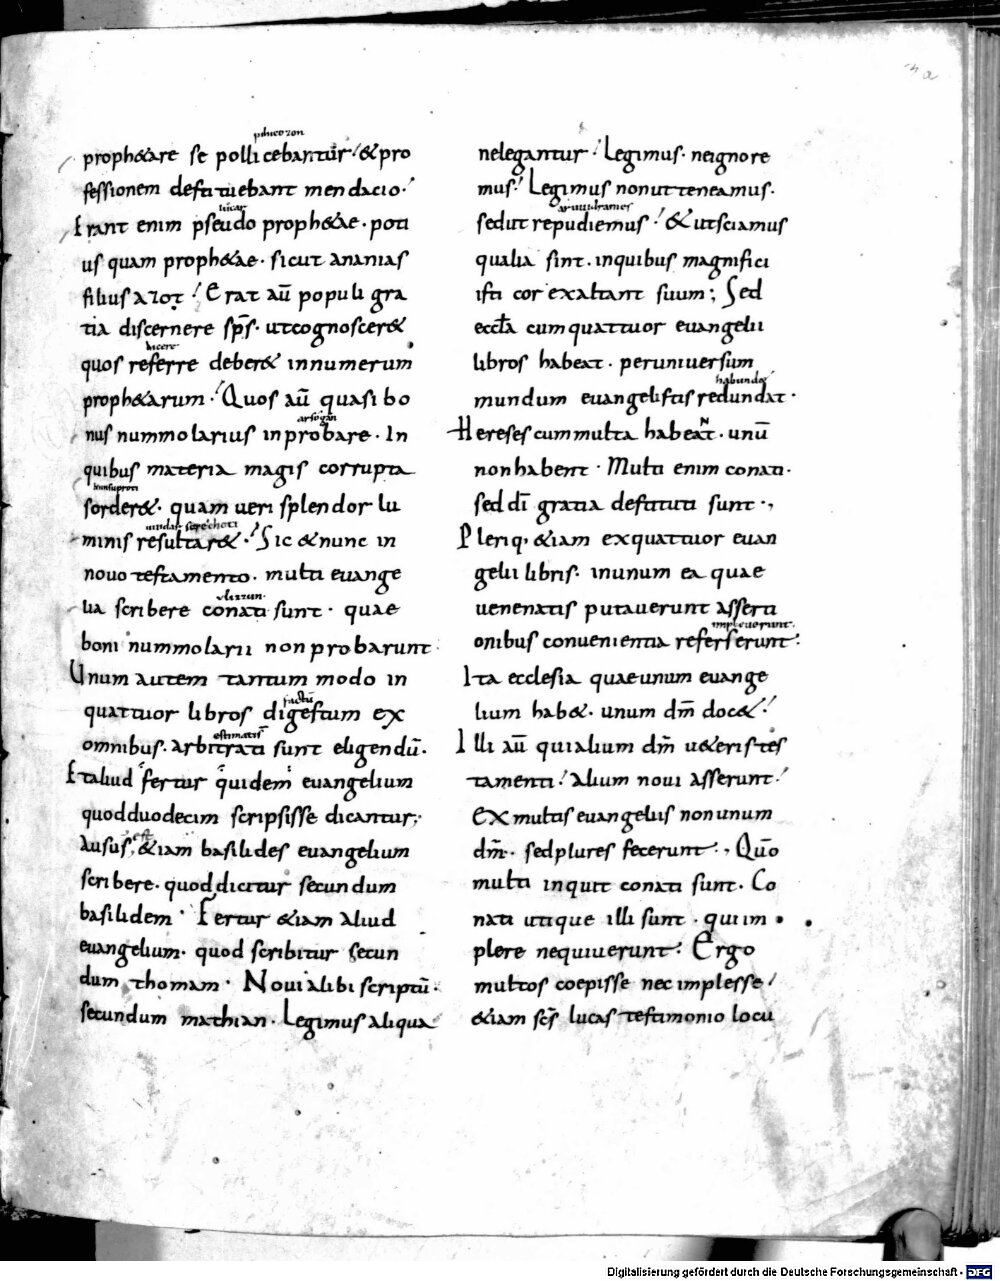 prophetare se pollicebantur! & pro
fessionem destituebant mendacio!
Erant enim pseudo prophetae. poti
us quam prophetae. sicut ananias
filius azot! Erat aū populi gra
tia discernere sp̄s. ut cognoscer&
quos referre deber& innumerum
proph&arum! Quos aū quasi bo
nus nummolarius in probare. In
quibus materia magis corrupta
sorder&. quam ueri splendor lu
minis resultar&! Sic & nunc in
nouo testamento. multi euange
lia scribere conati sunt. quae
boni nummolarii non probarunt
Unum autem tantum modo in
quattuor libros digestum ex
omnibus. arbitrati sunt eligendū.
Et aliud fertur quidem euangelium
quod duodecim scripsisse dicantur;
Ausus est &iam basilides euangelium
scribere. quod dicitur secundum
basilidem. Fertur &iam aliud
euangelium. quod scribitur secun
dum thomam. Noui alibi scriptū.
secundum mathian. Legimus aliqua
ne legantur! Legimus. ne ignore
mus! Legimus non ut teneamus.
sed ut repudiemus! & ut sciamus
qualia sint. in quibus magnifici
isti cor exaltant suum; Sed
eccła cum quattuor euangelii
libros habeat. per uniuersum
habundat
mundum euangelistis redundat.
Hereses cum multa habeant. unū
non habent. Multi enim conati.
sed dī gratia destituti sunt.,
Pleriq, &iam ex quattuor euan
gelii libris. in unum ea quae
uenenatis putauerunt asserti
impleuerunt.
onibus conuenientia referserunt:
Ita ecclesia quae unum euange
lium hab&. unum dm̄ doc&!
Illi aū qui alium dm̄ u&eris tes
tamenti! alium noui asserunt!
Ex multis euangeliis non unum
dm̄. sed plures fecerunt:, Quō
multi inquit conati sunt. Co
nati utique illi sunt. qui im
plere nequiuerunt: Ergo
multos coepisse nec implesse!
&iam sc̄s lucas testimonio locu